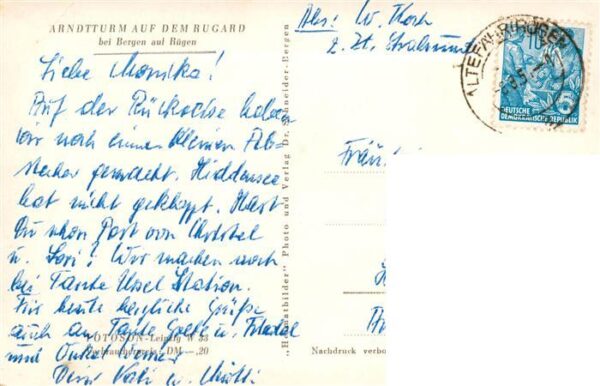 ARNDTTURM AUF DEM RUGARD
bei Bergen auf Rügen
Liebe Monika!
Auf der Rückreise haben
wir noch einen kleinen Ab-
stecher gemacht. Hiddensee
hat nicht geklappt. Hast
Du schon Post von Christel
u. Lori? Wir machen noch
bei Tante Usel Station.
Für heute herzliche Grüße
auch an Tante u.
und Onkel Werner
Dein Vati u. Mutti
FOTOSON-Leipzig W 33
Verbraucherpreis DM -.20
"Heimatbilder" Photo und Verlag Dr. Schneider-Bergen
Abs.: W. Koch
z. Zt. Stralsund
ALTEFÄHR (RÜGEN)
DEUTSCHE
DEMOKRATISCHE REPUBLIK
5
Nachdruck verbo